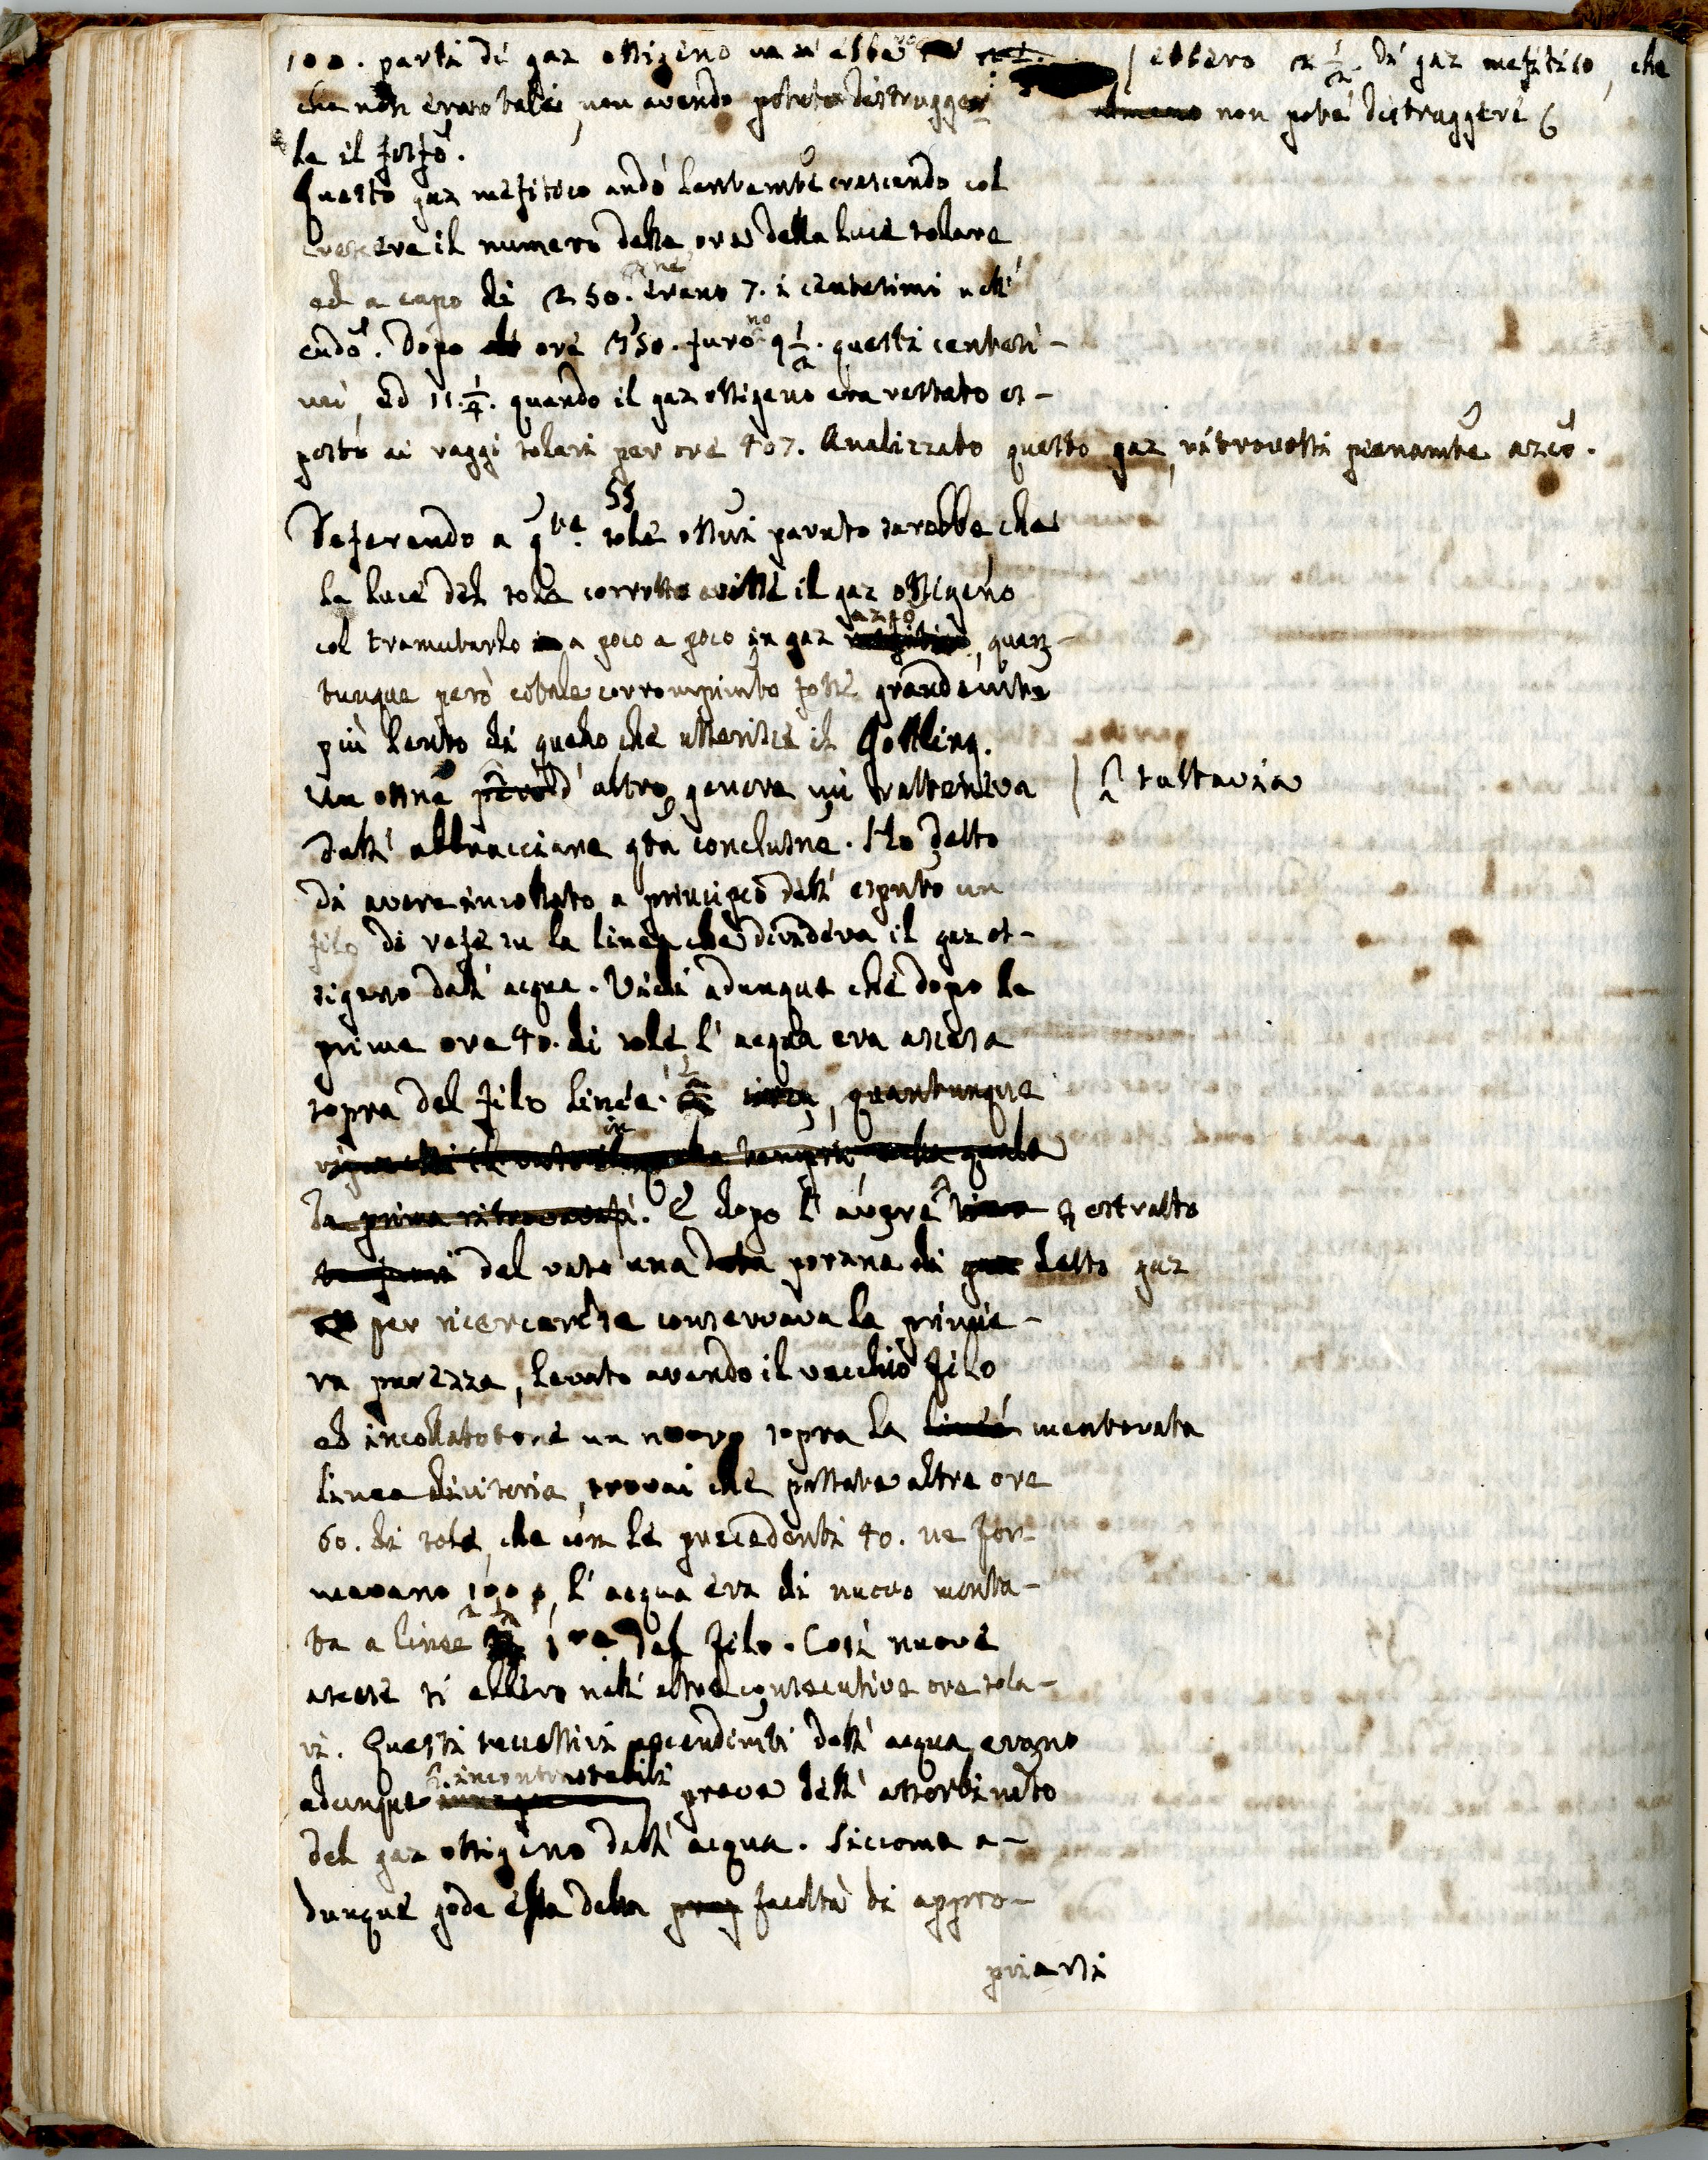 100. parti di gaz ossigeno va si ebbe
ebbero 2 1/2. di gaz mefitico, che
che non erano tali, non avendo potuto distrugger
almeno non potè distruggere
la il fosfo.
Questo gaz mefitico andò lentamte crescendo col
crescere il numero delle ore della luce solare
ed a capo di 250. erano 7. i centesimi nell'
eudo. Dopo ore 350. furono 9 1/2. questi centesi-
mi, ed 11. 1/4. quando il gaz ossigeno era restato es-
posto ai raggi solari per ore 407. Analizzato questo gaz, ritrovossi pienamte azco.
55
Deferendo a qte. sole ossni paruto sarebbe che
la luce del sole corrotto avesse il gaz ossigeno
azco
col tramutarlo a poco a poco in gaz mefitico, quan-
tunque però cotale corrompimto fosse grandemte
più lento di quello che asserisce il Gottling.
Un ossne però d'altro genere mi tratteneva
tuttavia
dall'abbracciare qta conclusne. Ho detto
di avere incollato a principio dell'esprto un
filo di refe su la linea che divideva il gaz os-
sigeno dall'acqua. Vidi adunque che dopo le
prime ore 40. di sole, l'acqua era ascesa
sopra del filo linee, quantunque
in
la prima ritrovavasi. E dopo l'avere estratto
dal vaso una data porzne di gaz detto gaz
per ricercare se conservava la primie-
ra purezza, levato avendo il vecchio filo
ed incollatotene un nuovo sopra la linea mentovata
linea divisoria, trovai che passate altre ore
60. di sole, che con le precedenti 40. ne for-
mavano 100, l'acqua era di nuovo monta-
ta a linee del filo. Così nuove
ascese si ebbero nell'altre consecutive ore sola-
ri. Questi successivi ascendimti dell'acqua erano
incontrastabili
adunque prova dell'assorbimto
del gaz ossigeno dall'acqua. Siccome a-
dunque gode essa della prop facoltà di appro-
priarsi